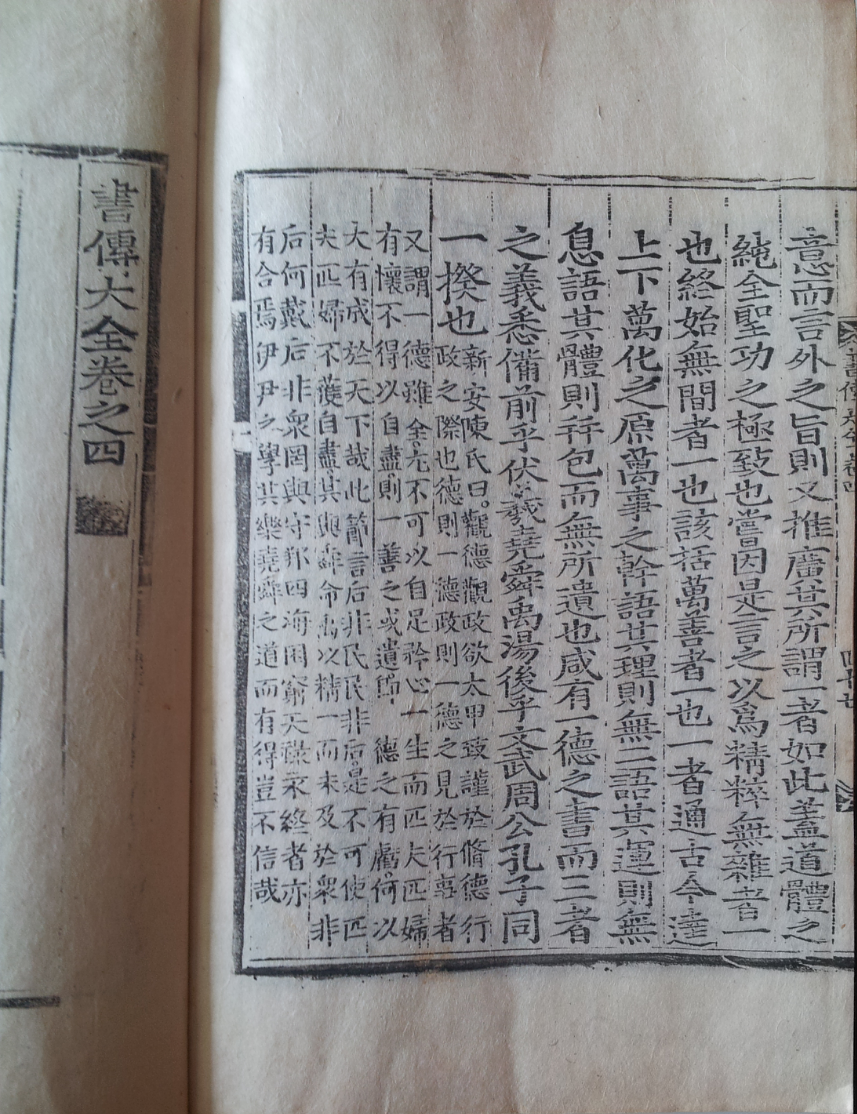 書傳大全卷四
四十七
意而言外之旨則又推廣其所謂一者如此蓋道體之
純全聖功之極致也嘗因是言之以爲精粹無雜者一
也終始無間者一也該括萬善者一也一者通古今達
上下萬化之原萬事之幹語其理則無二語其運則無
息語其體則幷包而無所遺也咸有一德之書而三者
之義悉備前乎伏羲堯舜禹湯後乎文武周公孔子同
一揆也
新安陳氏曰觀德觀政欲太甲致謹於脩德行
政之際也德則一德政則一德之見於行事者
又謂一德雖全尤不可以自足矜心一生而匹夫匹婦
有懷不得以自盡則一善之或遺歸一德之有虧何以
大有成於天下哉此節言后非民民非后是不可使匹
夫匹婦不獲自盡其與舜命禹以精一而未及於衆非
后何戴后非衆罔與守邦四海困窮天祿永終者亦
有合焉伊尹之學其樂堯舜之道而有得豈不信哉
書傳大全卷之四